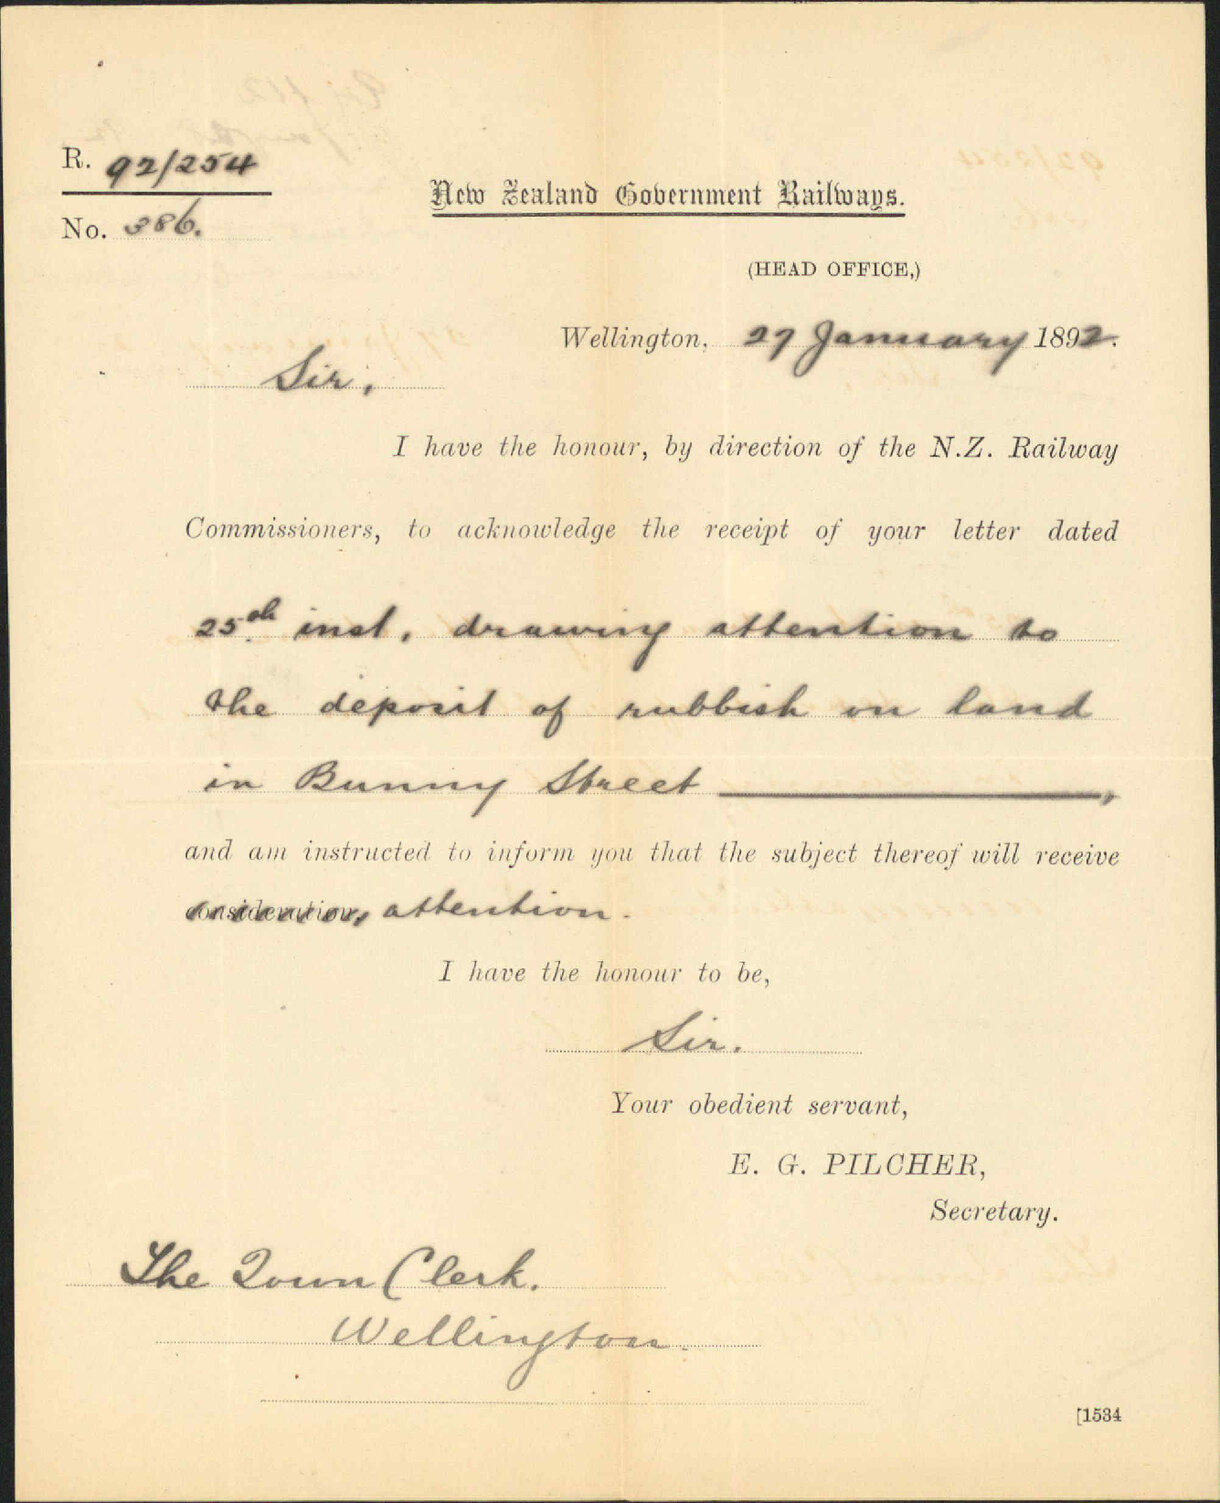 R. 92/254
No. 386.
New Zealand Government Railways.
(HEAD OFFICE,)
Wellington, 27 January 1892.
Sir,
I have the honour, by direction of the N.Z. Railway
Commissioners, to acknowledge the receipt of your letter dated
25th inst, drawing attention to
the deposit of rubbish on land
in Bunny Street ,
and am instructed to inform you that the subject thereof will receive
consideration, attention.
I have the honour to be,
Sir.
Your obedient servant,
E. G. PILCHER,
Secretary.
The Town Clerk.
Wellington.
[1534